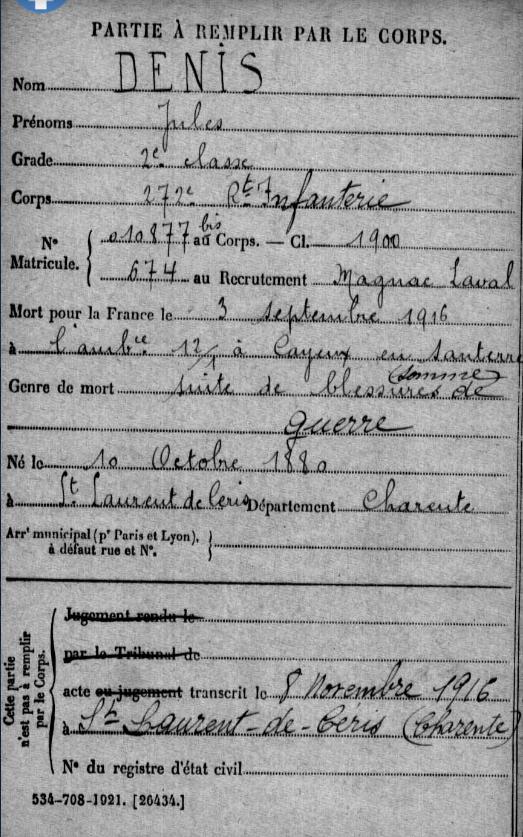 PARTIE À REMPLIR PAR LE CORPS.
Nom DENIS
Prénoms Jules
Grade 2e classe
Corps 272e Rt d'Infanterie
N° Matricule. { 010877 bis au Corps. — Cl. 1900
674 au Recrutement Magnac Laval
Mort pour la France le 3 septembre 1916
à l'ambce 12/1 à Cayeux en Santerre
(Somme)
Genre de mort suite de blessures de
guerre
Né le 10 Octobre 1880
à St Laurent de Ceris Département Charente
Arrt municipal (pr Paris et Lyon),
à défaut rue et N°. }
Cette partie
n'est pas à remplir
par le Corps.
Jugement rendu le
par le Tribunal de
acte ou jugement transcrit le 8 Novembre 1916
à St Laurent-de-Ceris (Charente)
N° du registre d'état civil
534-708-1921. [26434.]